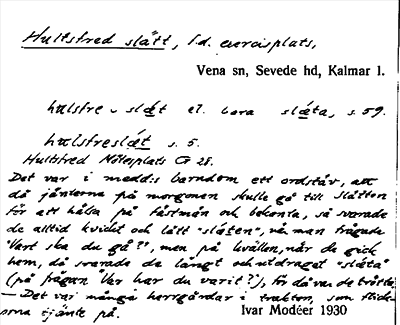 Hultsfred slätt, f.d. exercisplats,
Vena sn, Sevede hd, Kalmar l.
hulsfre - slæt el. bara slæta, s. 59.
hulsfreslæt s. 5.
Hultsfred Mötesplats G 28.
Det var i medd:s barndom ett ordstäv, att
då jäntorna på morgonen skulle gå till slätten
för att hälsa på fästmän och bekanta, så svarade
de alltid kvickt och lätt "släten", när man frågade
"Vart ska du gå?", men på kvällen, när de gick
hem, då svarade de långt och utdraget "släta"
(på frågan "Var har du varit?"), för då var de trötta.
— Det var många herrgårdar i trakten, som flick-
orna tjänte på.
Ivar Modéer 1930